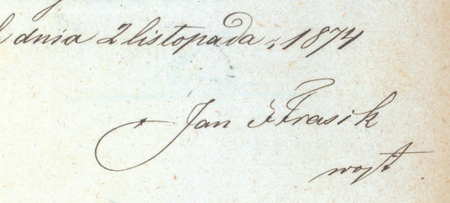 dnia 2 listopada, 1874
Jan Frasik
wojt